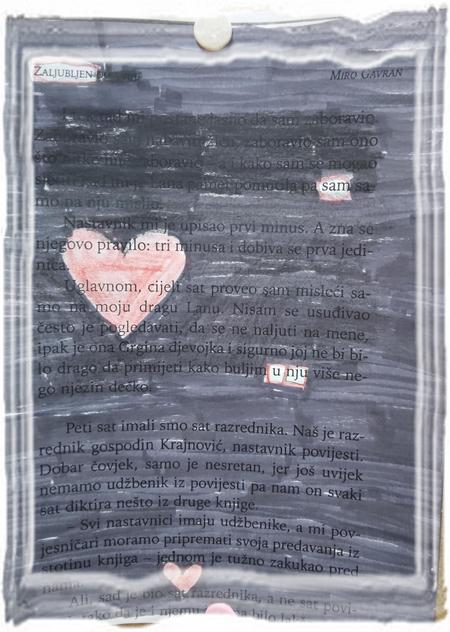 ZALJUBLJEN
MIRO GAVRAN
da sam zaboravio
zaboravio sam ono
zaboravio – a i kako sam se mogao
Lana pamet pomutila pa sam sa-
mo na nju mislio.
Nastavnik mi je upisao prvi minus. A zna se
njegovo pravilo: tri minusa i dobiva se prva jedi-
nica.
Uglavnom, cijeli sat proveo sam misleći sa-
mo na moju dragu Lanu. Nisam se usuđivao
često je pogledavati, da se ne naljuti na mene,
ipak je ona Grgina djevojka i sigurno joj ne bi bi-
lo drago da primijeti kako buljim u nju više ne-
go njezin dečko.
Peti sat imali smo sat razrednika. Naš je raz-
rednik gospodin Krajnović, nastavnik povijesti.
Dobar čovjek, samo je nesretan, jer još uvijek
nemamo udžbenik iz povijesti pa nam on svaki
sat diktira nešto iz druge knjige.
– Svi nastavnici imaju udžbenike, a mi pov-
jesničari moramo pripremati svoja predavanja iz
stotinu knjiga – jednom je tužno zakukao pred
nama.
Ali, sad je bio sat razrednika, a ne sat povi-
tako da je i njemu bilo